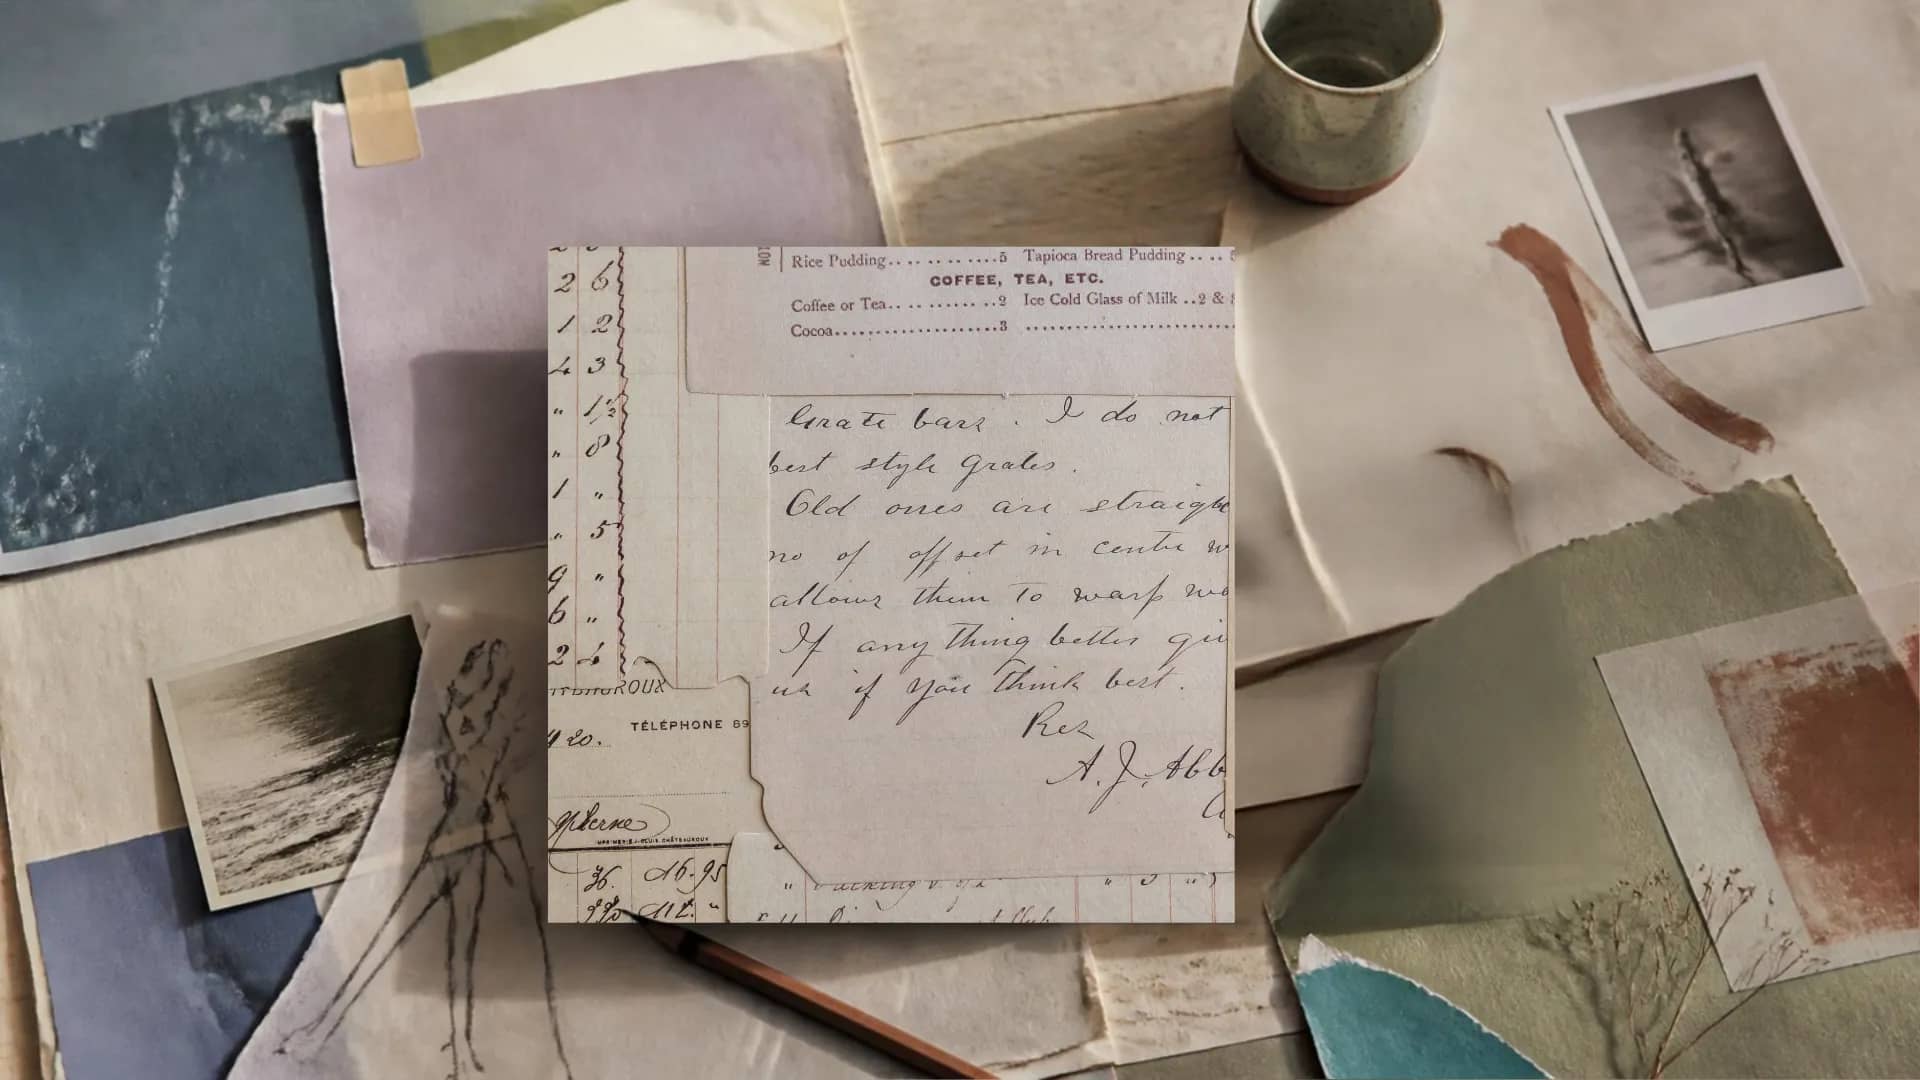 Rice Pudding.. .. .. .. ....5 Tapioca Bread Pudding .. ..
COFFEE, TEA, ETC.
Coffee or Tea.. .. ...... ..2 Ice Cold Glass of Milk ..2 &
Cocoa....................3
2 6
1 2
4 3
" 1½
" 8
1 "
" 5
9 "
6 "
2
Grate bars. I do not
best style Grates.
Old ones are straight
no of offset in centre
allows them to warp
If any thing better
us if you think best.
Res
A. J. Abb
TÉLÉPHONE 89
20.
36. 16.95
112. "